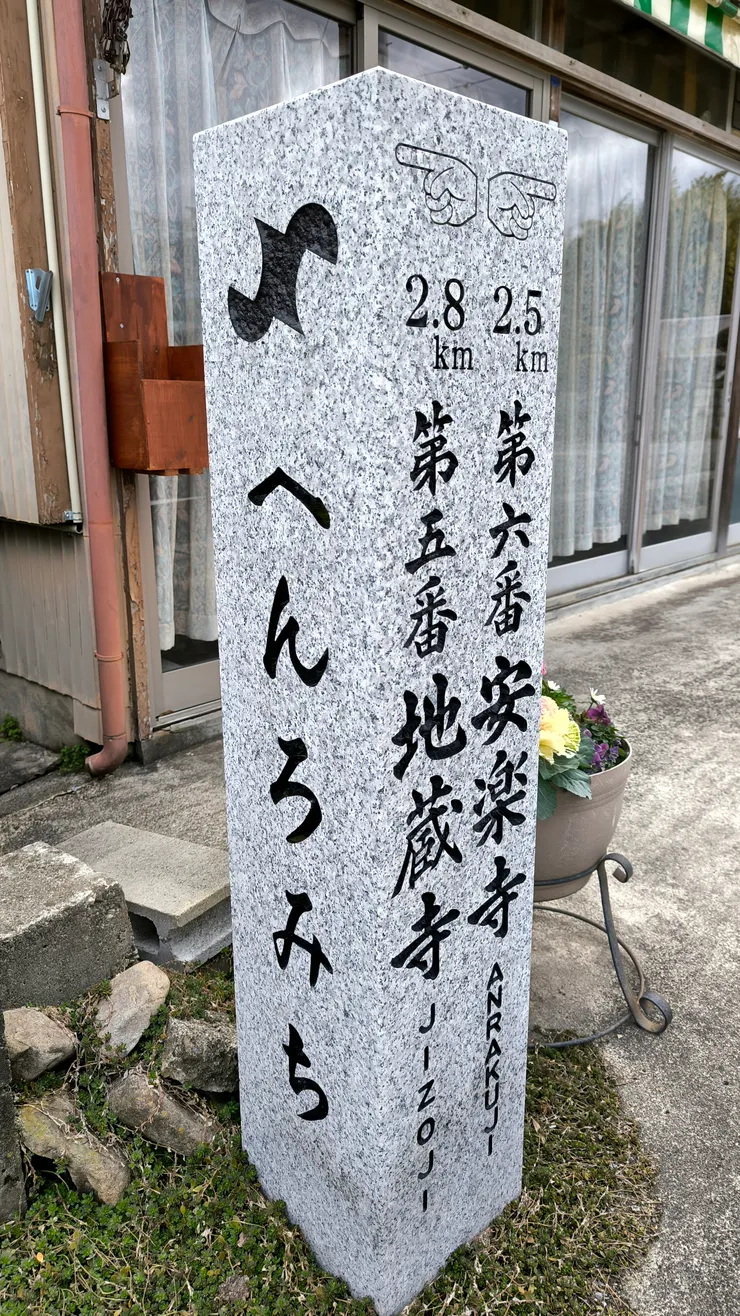 へんろみち
2.5 km
第六番 安楽寺 ANRAKUJI
2.8 km
第五番 地蔵寺 JIZOJI